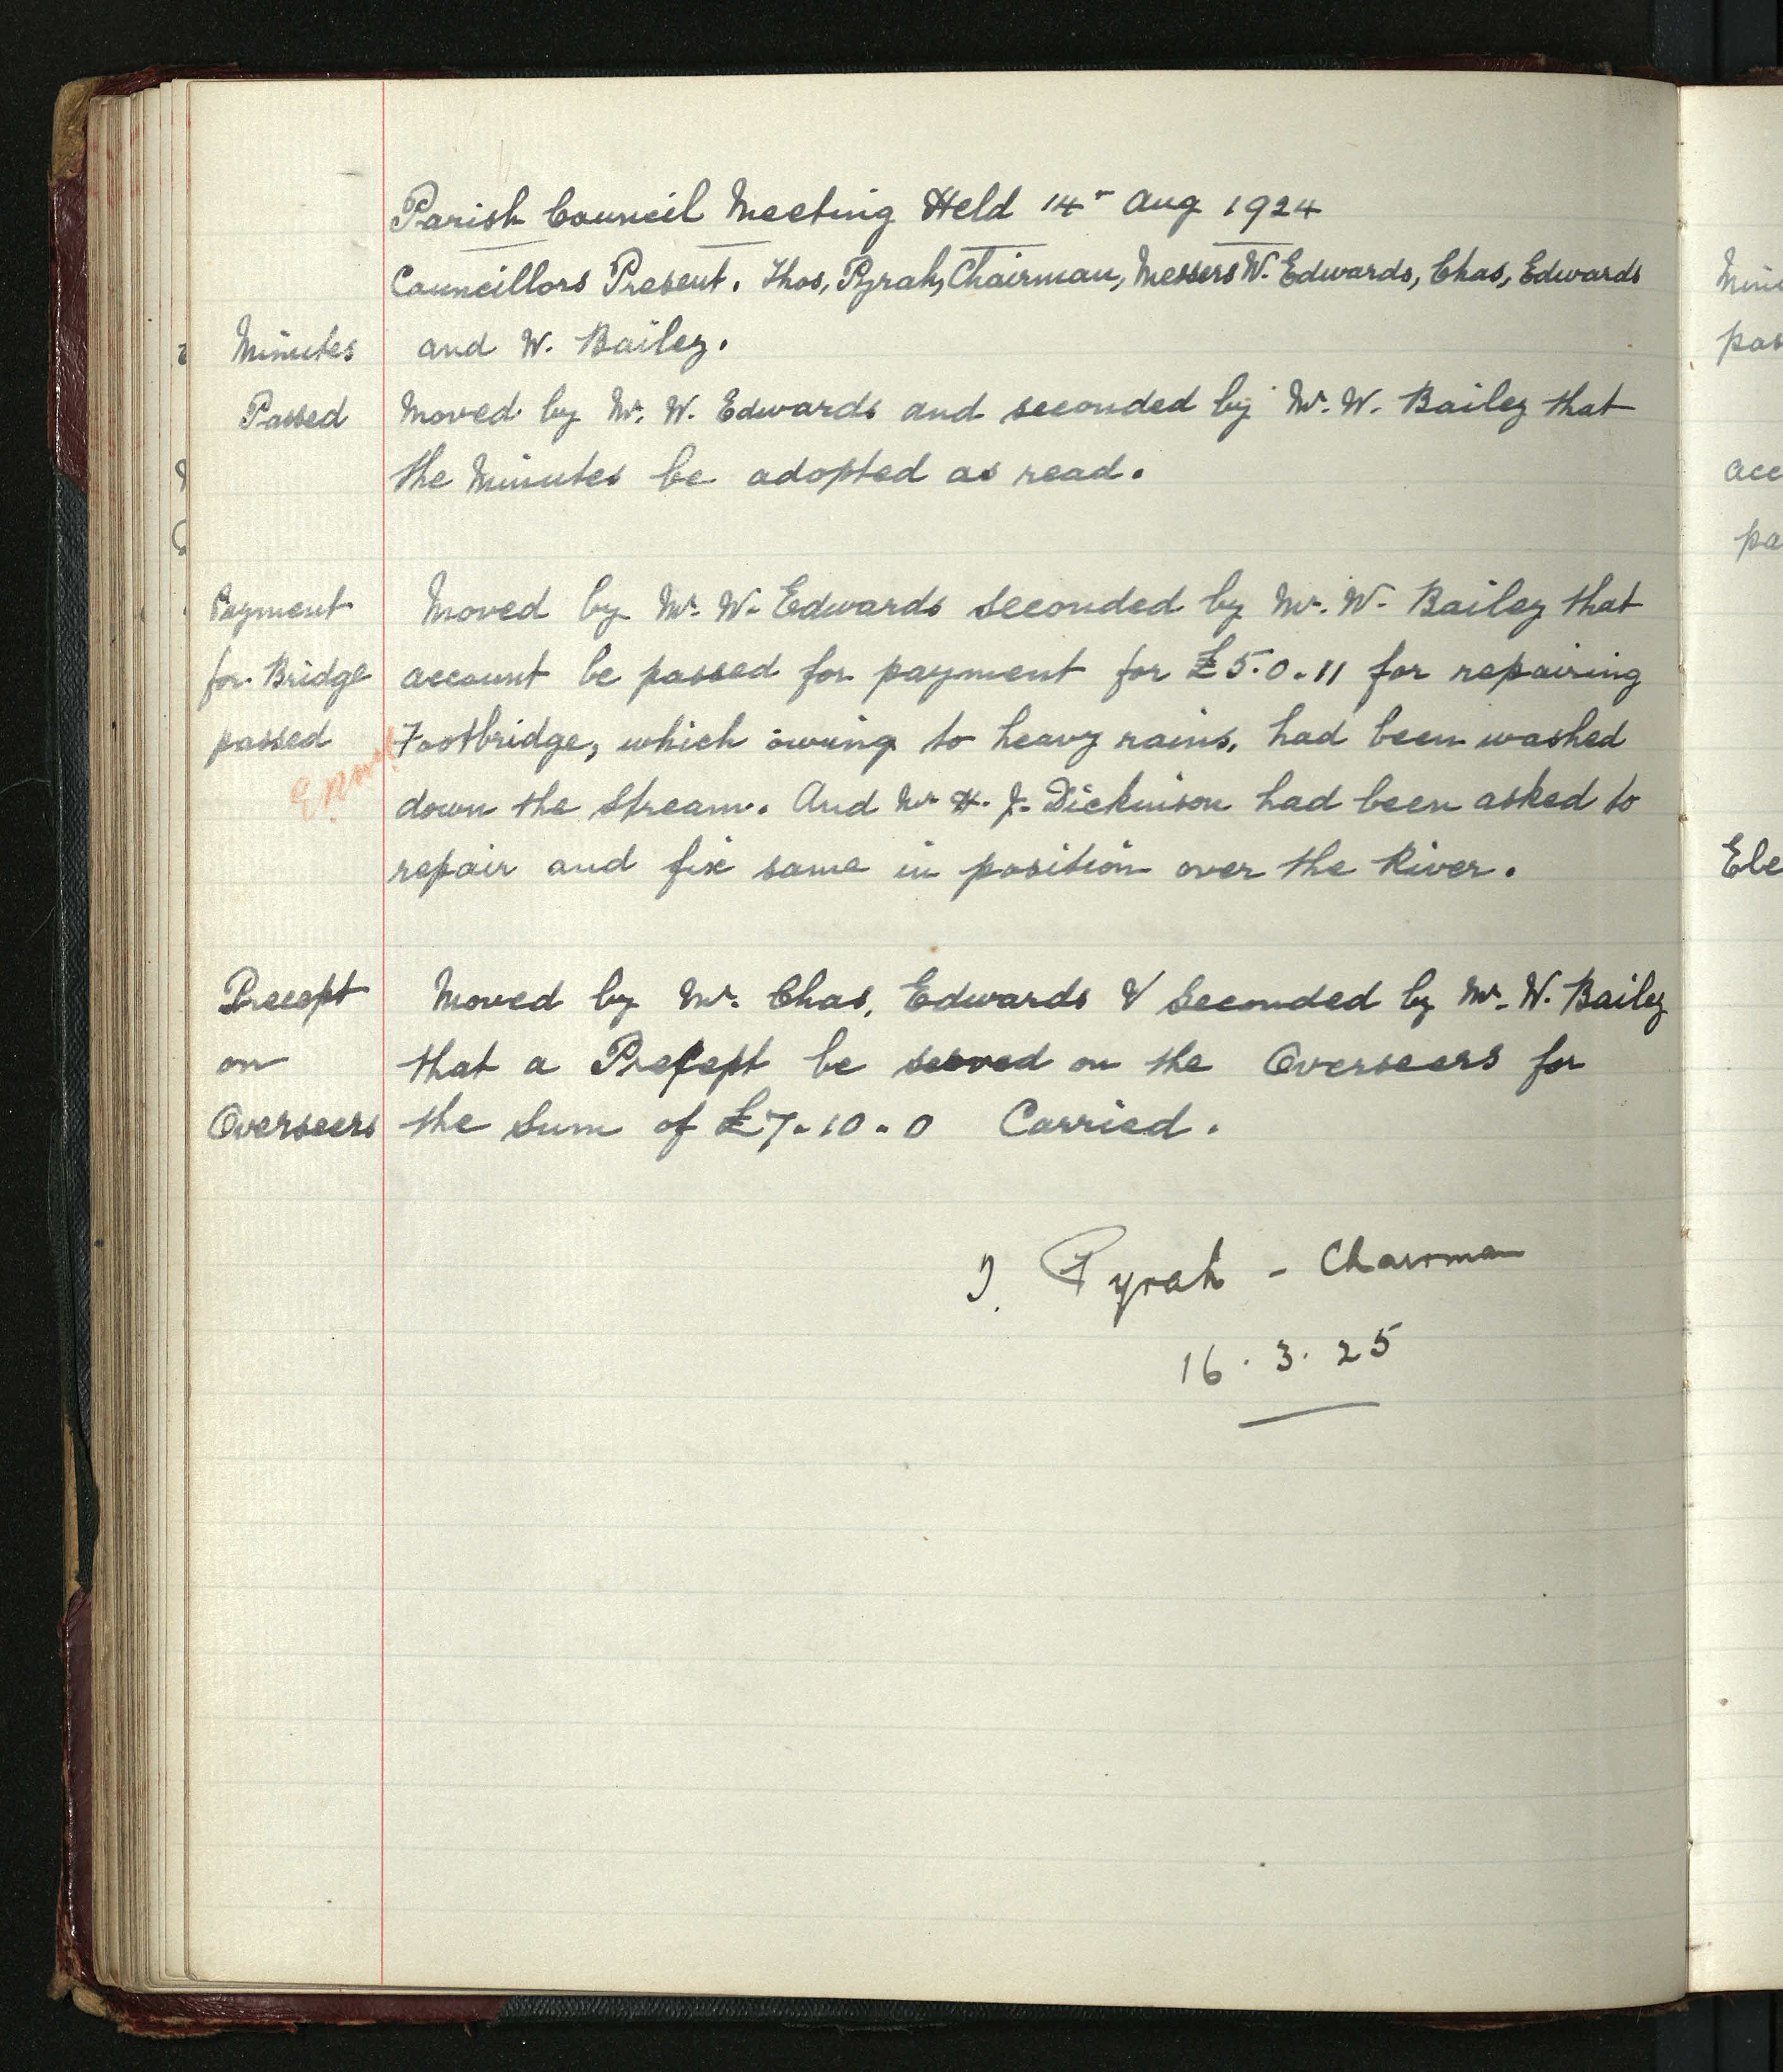 Parish Council Meeting Held 14th Aug 1924
Councillors Present. Thos, Pyrah, Chairman, Messers W. Edwards, Chas, Edwards
Minutes and W. Bailey.
Passed Moved by Mr. W. Edwards and seconded by Mr. W. Bailey that
the Minutes be adopted as read.
Payment Moved by Mr. W. Edwards seconded by Mr. W. Bailey that
for Bridge account be passed for payment for £5.0.11 for repairing
passed Footbridge, which owing to heavy rains, had been washed
down the Stream. And Mr H. J. Dickinson had been asked to
repair and fix same in position over the River.
Precept Moved by Mr. Chas, Edwards & Seconded by Mr. W. Bailey
on that a Precept be served on the Overseers for
Overseers the Sum of £7.10.0 Carried.
T. Pyrah - Chairman
16.3.25